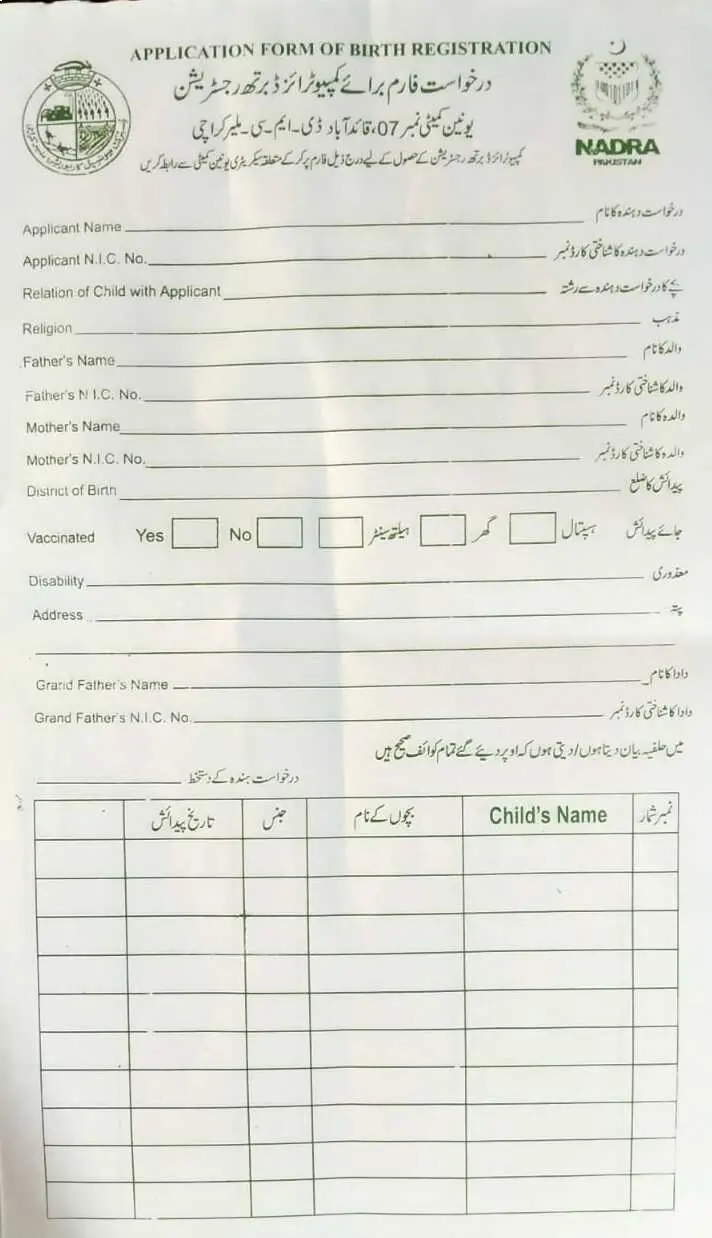 APPLICATION FORM OF BIRTH REGISTRATION
درخواست فارم برائے کمپیوٹرائزڈ برتھ رجسٹریشن
یونین کمیٹی نمبر 07، قائدآباد ڈی۔ایم۔سی۔ملیر کراچی
کمپیوٹرائزڈ برتھ رجسٹریشن کے حصول کے لیے درج ذیل فارم پر کرکے متعلقہ سیکریٹری یونین کمیٹی سے رابطہ کریں
NADRA
PAKISTAN
Applicant Name درخواست دہندہ کا نام
Applicant N.I.C. No. درخواست دہندہ کا شناختی کارڈ نمبر
Relation of Child with Applicant بچے کا درخواست دہندہ سے رشتہ
Religion مذہب
Father's Name والد کا نام
Father's N.I.C. No. والد کا شناختی کارڈ نمبر
Mother's Name والدہ کا نام
Mother's N.I.C. No. والدہ کا شناختی کارڈ نمبر
District of Birth پیدائش کا ضلع
Vaccinated Yes No ہیلتھ سینٹر گھر ہسپتال جائے پیدائش
Disability معذوری
Address پتہ
Grand Father's Name دادا کا نام
Grand Father's N.I.C. No. دادا کا شناختی کارڈ نمبر
میں حلفیہ بیان دیتا ہوں/دیتی ہوں کہ اوپر دیئے گئے تمام کوائف صحیح ہیں
درخواست ہندہ کے دستخط
تاریخ پیدائش جنس بچوں کے نام Child's Name نمبر شمار